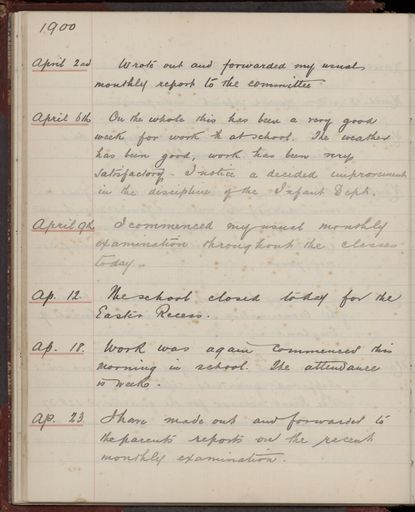 1900
April 2nd Wrote out and forwarded my usual
monthly report to the committee.
April 6th On the whole this has been a very good
week for work & at school. The weather
has been good, work has been very
satisfactory - I notice a decided improvement
in the discipline of the Infant Dept.
April 9th I commenced my usual monthly
examination throughout the classes
today.
Ap. 12. The school closed today for the
Easter Recess.
Ap. 18. Work was again commenced this
morning in school. The attendance
is weak.
Ap. 23. I have made out and forwarded to
the parents reports on the recent
monthly examination.